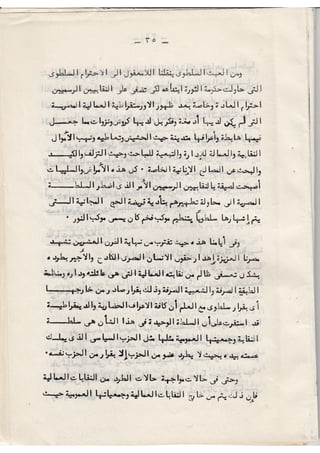 — ٣٥ —
ومن العبث السلطوى ينقلنا اللامعقول الى الاحترام السلطوى
التى حاولت حكومة الثورة ابتداعه لكى تضفى على النقابيين الرسميين
احترام العادة وخاصة بعد ظهور الارستقراطية العمالية المصرية
التى لم يكن لديها أدمغة وفكر بل لديها كروش ونزوات مما جعل
قيمها هابطة وأعرافها متدنية حيث الحشيش وتعاطيه ونهب الأموال
النقابية والعمالة للادارة والتبعية للمباحث وحيث التزلف والكيد
والبحث عن المصالح الانانية الخاصة ٠ كل هذه الأمراض والسلبيات
أصبحت لصيقة بالنقابيين الرسميين الأمر الذى اضطر السلطة
المصرية الى محاولة تطهيرهم بتأدية فريضة الحج المجانية التى
يتم إشهارها سلطويا بتنظيم موكب فخم كان يسمى موكب النور ٠
وفى أيامنا هذه حيث نقترب من نهاية القرن العشرين تشهد
مصرنا العزيزة إهدار حقوق الانسان المصرى الكادح والأجير بطرده
بشكل تعسفى ظالم من نقابته العمالية التى هى عائلته وداره ومنظمته
الطبقية الصرفة والشعبية الصرفة وذلك بقرار صادر من خارجها
أى بقرار سلطوى مع العلم أن كافة الاعراف الحضارية والديمقراطية
قد استقرت على أن السلطة الوحيدة فى هذا الشأن هى سلطة
النقابة وجمعيتها العمومية مثلها مثل الحزب السياسى الذى يملك
عصمته بيده بحيث لا يطرد عضو من الحزب إلا بقرار من الحزب نفسه ٠
وحتى فى حالات مواجهة حالات الطرد من النقابات العمالية
فإن ذلك يتم من خارج النقابات العمالية وجمعياتها العمومية حيث